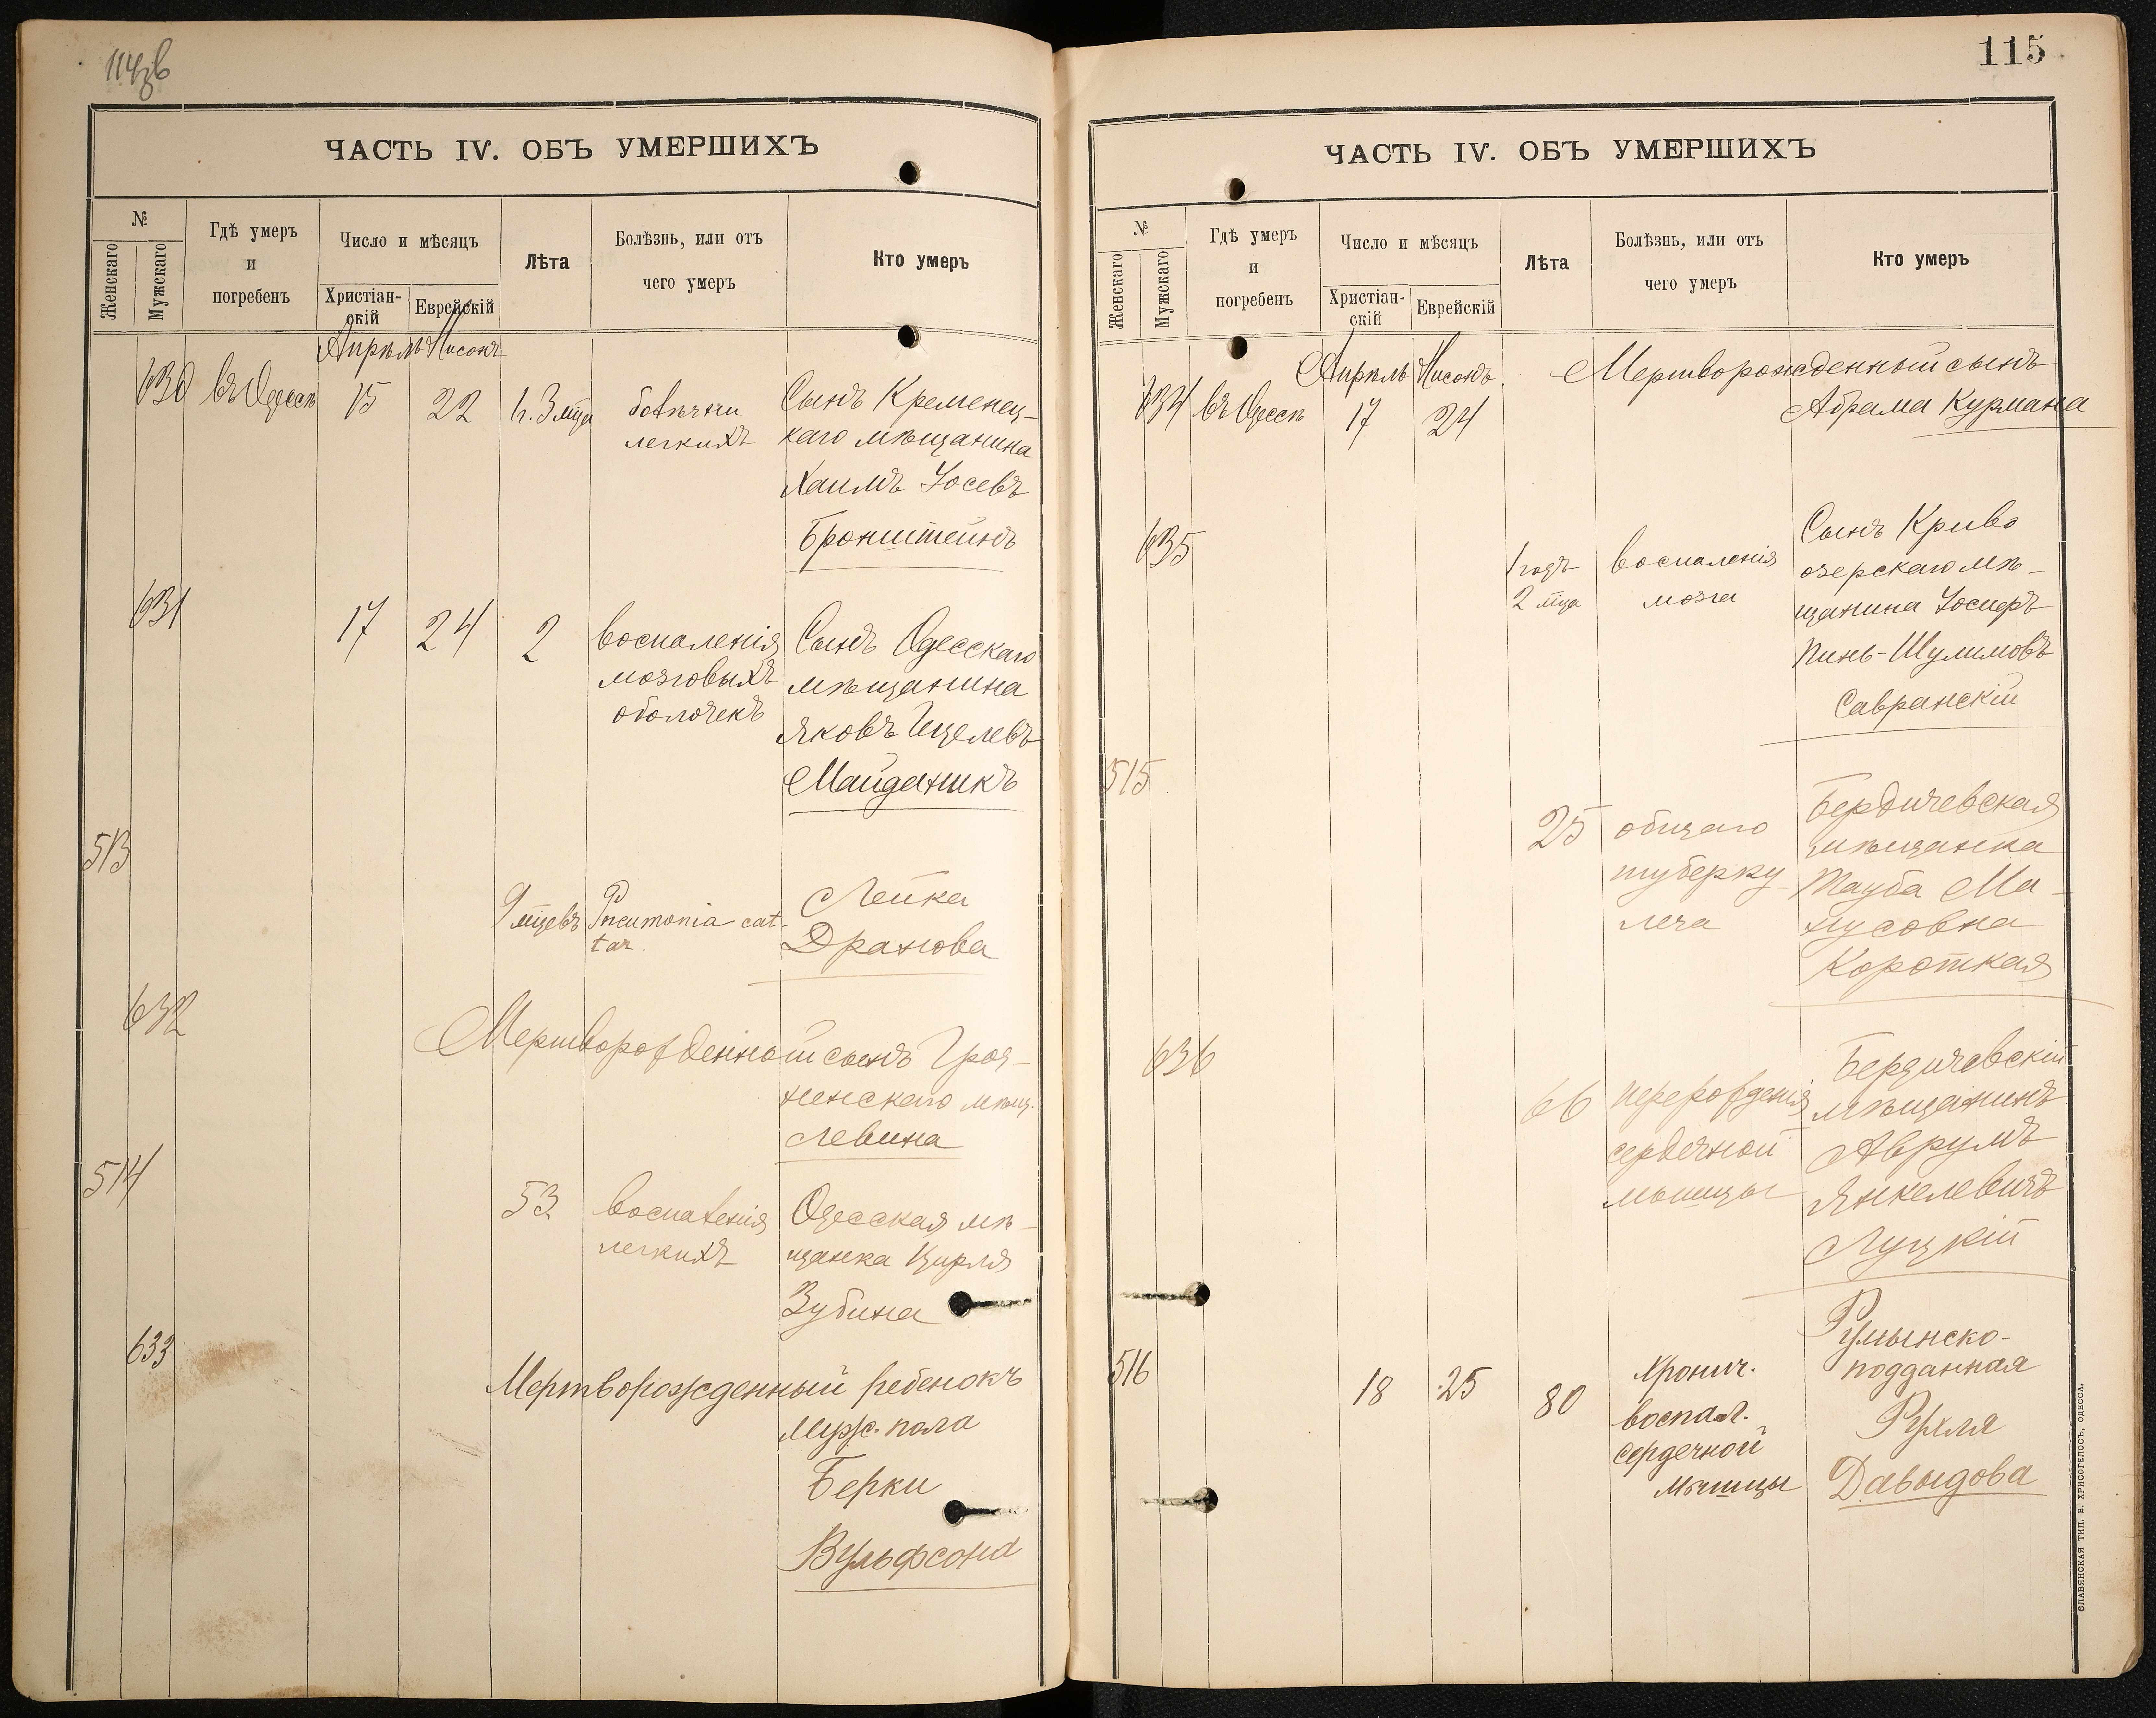 114об
ЧАСТЬ IV. ОБЪ УМЕРШИХЪ
№
Женскаго
Мужскаго
Гдѣ умеръ
и
погребенъ
Число и мѣсяцъ
Христіан-
скій
Еврейскій
Лѣта
Болѣзнь, или отъ
чего умеръ
Кто умеръ
Апрѣль Нисонъ
630 въ Одессѣ 15 22 1г. 3 мца
легкихъ
Сынъ Кременец-
каго мѣщанина
Хаимъ Іосевъ
Бронштейнъ
631 17 24 2
воспаленія
мозговыхъ
оболочекъ
Сынъ Одесскаго
мѣщанина
Яковъ Ицелевъ
Майданикъ
513
9 мцевъ
Pneumonia cat-
tar.
Лейка
Дранова
632
Мертворожденный сынъ
мѣщ.
Левина
514
53
воспаленія
легкихъ
Одесская мѣ-
щанка Цирля
Зубина
633
Мертворожденный ребенокъ
Муж. пола
Берки
Вульфсона
115
ЧАСТЬ IV. ОБЪ УМЕРШИХЪ
№
Женскаго
Мужскаго
Гдѣ умеръ
и
погребенъ
Число и мѣсяцъ
Христіан-
скій
Еврейскій
Лѣта
Болѣзнь, или отъ
чего умеръ
Кто умеръ
Апрѣль Нисонъ
634 въ Одессѣ 17 24
Мертворожденный сынъ
Абрама Курмана
635
1 годъ
2 мца
воспаленія
мозга
Сынъ Криво
озерскаго мѣ-
щанина Іосифъ
Пинь-Шулимовъ
Савранскій
515
25
общаго
туберку-
леза
Бердичевская
мѣщанка
Тауба Ма-
нусовна
Короткая
636
66
перерожденія
сердечной
мышцы
Бердичевскій
мѣщанинъ
Аврумъ
Янкелевичъ
Луцкій
516 18 25 80
Хронич.
воспал.
сердечной
Мышцы
Румынско-
подданная
Рухля
Давыдова
СЛАВЯНСКАЯ ТИП. Е. ХРИСОГЕЛОСЪ, ОДЕССА.